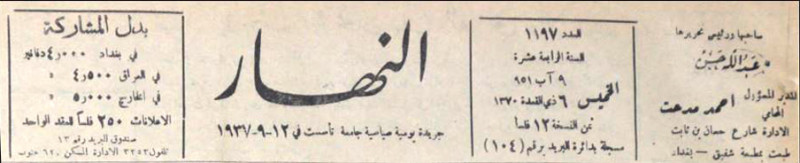 صاحبها ورئيس تحريرها
عبدالله حسن
المدير المسؤول
احمد مدحت
المحامي
الادارة شارع حسان بن ثابت
طبعت بمطبعة شفيق - بغداد
العدد ١١٩٧
السنة الرابعة عشرة
٩ آب ٩٥١
الخميس ٦ ذي القعدة ١٣٧٠
ثمن النسخة ١٢ فلسا
مسجلة بدائرة البريد برقم (١٠٤)
النهار
جريدة يومية سياسية جامعة تأسست في ١٢-٩-١٩٣٧
بدل المشاركة
في بغداد ٤٫٠٠٠ دنانير
في العراق ٤٫٥٠٠ »
في الخارج ٥٫٠٠٠ »
الاعلانات ٢٥٠ فلسا للعقد الواحد
صندوق البريد رقم ١٣
تلفون ٣٢٥٣ الادارة المسكن ٦٢٠ جنوب